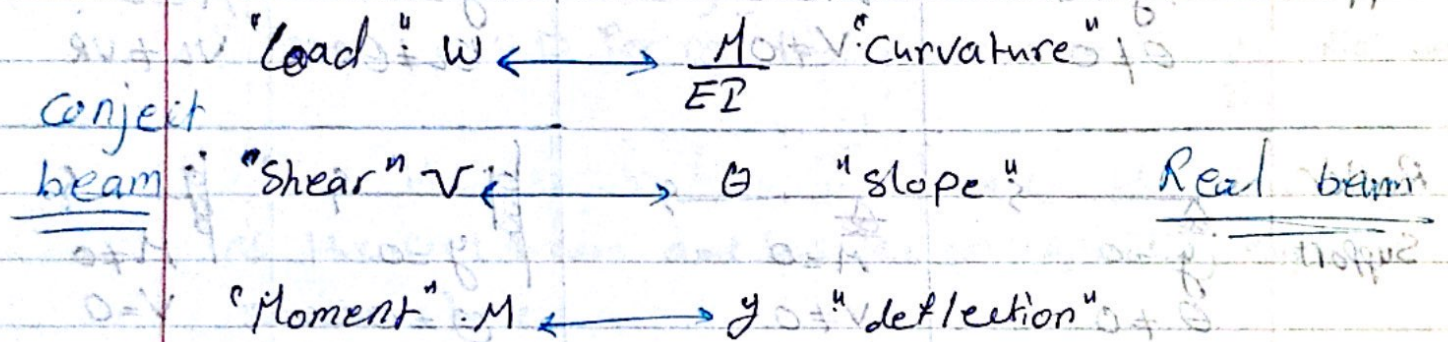 "Load" W ⟷ M/EI "Curvature"
conject
beam "Shear" V ⟷ θ "slope" Real beam
"Moment" M ⟷ y "deflection"